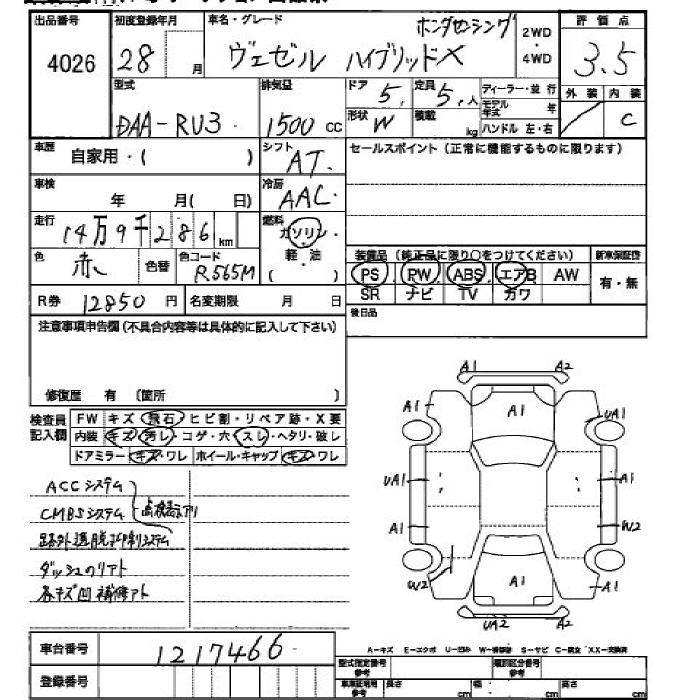 出品番号 4026
初度登録年月 28 月
車名・グレード ヴェゼル ハイブリッドX ホンダセンシング
2WD・4WD
評価点 3.5
外装 内装 C
型式 DAA-RU3
排気量 1500 cc
ドア 5 定員 5人
形状 W 積載 kg
ディーラー・並行
モデル年式 年
ハンドル 左・右
車歴 自家用・( )
シフト AT
セールスポイント(正常に機能するものに限ります)
車検 年 月( 日)
冷房 AAC
走行 14万9千286km
燃料 ガソリン・軽油 ( )
色 赤 色替 色コード R565M
装備品(純正品に限り〇をつけてください) 新車保証書
PS PW ABS エアB AW 有・無
SR ナビ TV カワ
R券 12850円 名変期限 月 日
後日品
注意事項申告欄(不具合内容等は具体的に記入して下さい)
修復歴 有 〔箇所 〕
検査員記入欄
FW キズ・飛石・ヒビ割・リペア跡・X要
内装 キズ・汚レ・コゲ・穴・スレ・ヘタリ・破レ
ドアミラー キズ・ワレ ホイール・キャップ キズ・ワレ
ACCシステム
CMBSシステム 点検表示アリ
路外逸脱抑制システム
ダッシュのリアト
各キズ凹補修アト
A1 A2
A1 A1 UA1
UA1 A1
A1 W2
W2 A1 A1
UA2 A2
車台番号 1217466
登録番号
A-キズ E-エクボ U-凹み W-補修跡 S-サビ C-腐食 XX-交換済
型式指定番号 参考
類別区分番号 参考
車庫証明用 参考 長さ cm 幅 cm 高さ cm